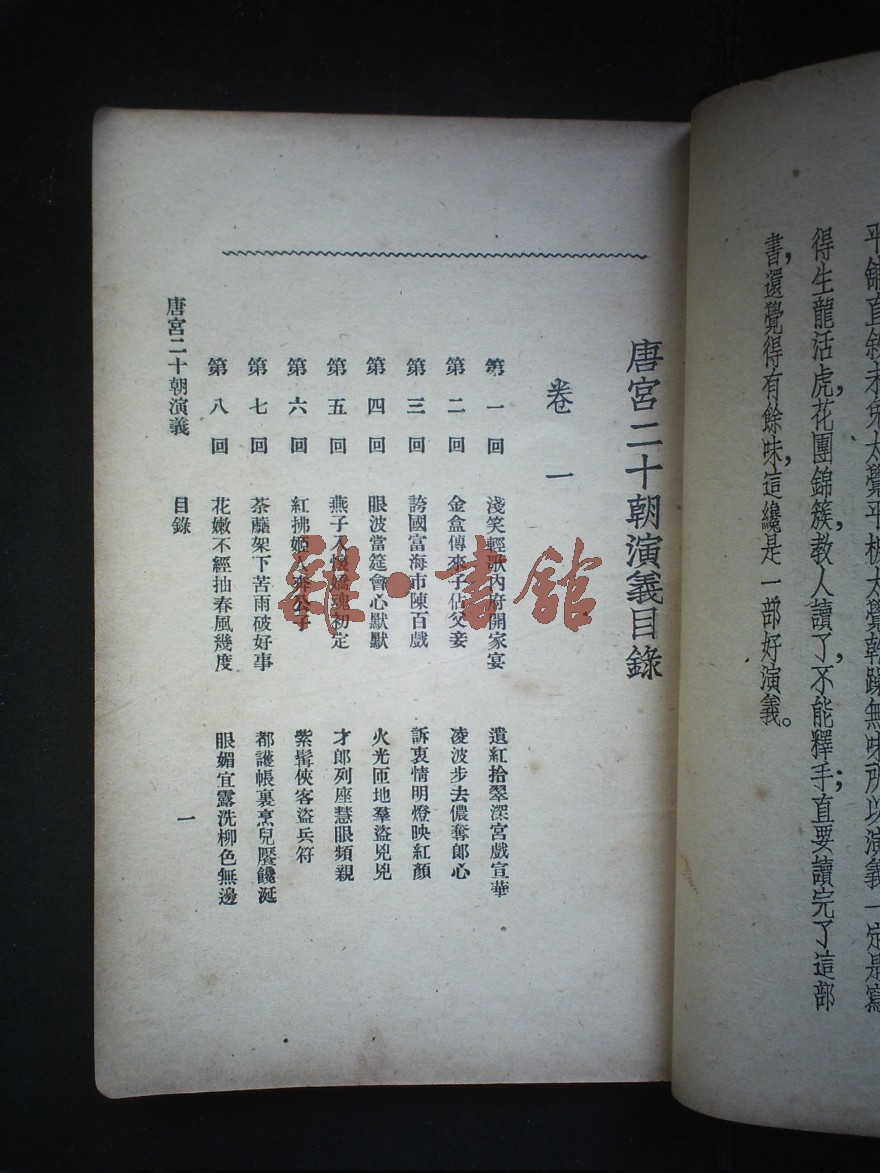 平鋪直敘未免太覺平板太覺乾躁無味所以演義一定是寫
得生龍活虎,花團錦簇,教人讀了,不能釋手;直要讀完了這部
書,還覺得有餘味,這纔是一部好演義。
唐宮二十朝演義目錄
卷一
第一回 淺笑輕顰內府開家宴 遺紅拾翠深宮戲宣華
第二回 金盒傳來子佔父妾 凌波步去儂奪郎心
第三回 誇國富海市陳百戲 訴衷情明燈映紅顏
第四回 眼波當筵會心默默 火光匝地羣盜兇兇
第五回 燕子入懷嬌魂初定 才郎列座慧眼頻親
第六回 紅拂姬人奔公子 紫髯俠客盜兵符
第七回 荼蘼架下苦雨破好事 都護帳裏烹兒饜饞涎
第八回 花嫩不經抽春風幾度 眼媚宜露洗柳色無邊
唐宮二十朝演義 目錄 一
雜·書館